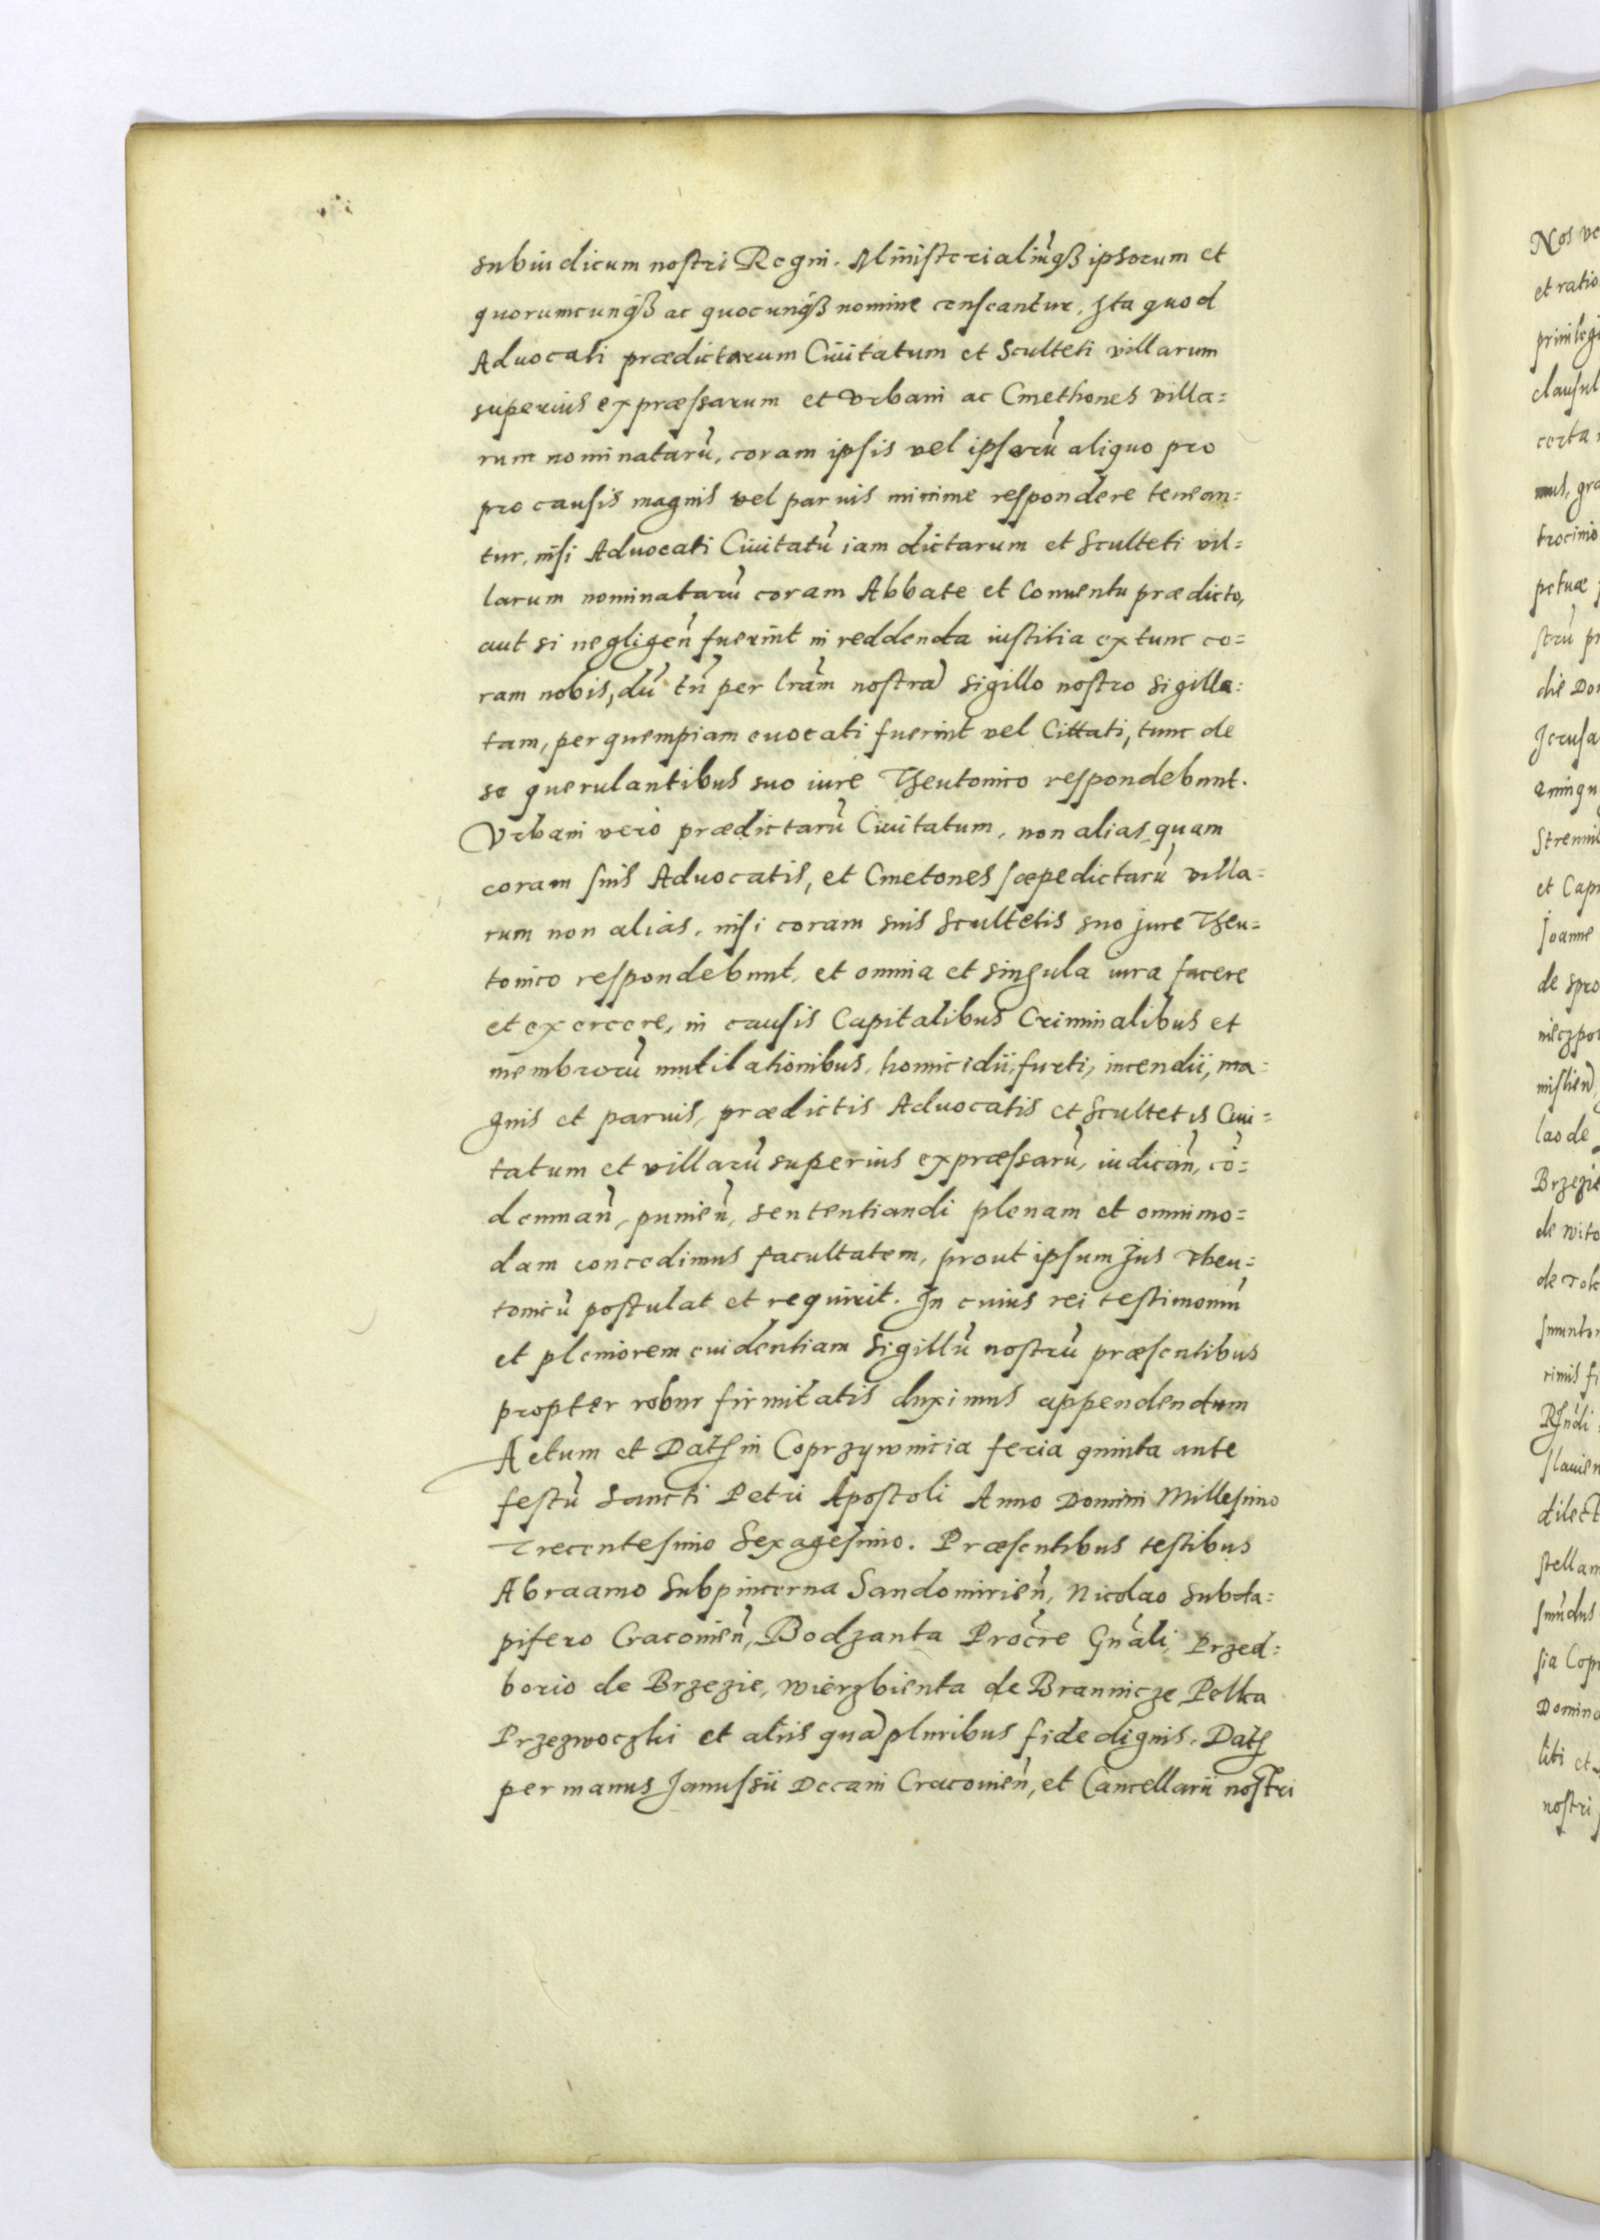 subiudicum nostri Regni. Ministerialiũqȝ ipsorum et
quorumcunqȝ ac quocunqȝ nomine censeantur. Ita quod
Advocati prædictarum Ciuitatum et Sculteti villarum
superius expræssarum et Vrbani ac Cmethones villa=
rum nominatarũ, coram ipsis vel ipsorũ aliquo pro
pro causis magnis vel paruis minime respondere tenean=
tur, nisi Advocati Ciuitatũ iam dictarum et Sculteti vil=
larum nominatarũ coram Abbate et Conuentu prædicto,
aut si negligeñ fuerint in reddenda iustitia extunc co=
ram nobis, dũ tñ per lr̃am nostrã sigillo nostro sigilla=
tam, per quempiam euocati fuerint vel Cittati, tunc de
se querulantibus suo iure Theutonico respondebunt.
Vrbani vero prædictarũ Ciuitatum, non alias quam
coram suis Advocatis, et Cmetones sæpedictarũ villa=
rum non alias, nisi coram suis Scultetis suo jure Theu=
tonico respondebunt, et omnia et singula iura facere
et exercere, in causis Capitalibus Criminalibus et
membrorũ mutilationibus, homicidii, furti, incendii, ma=
gnis et paruis, prædictis Advocatis et Scultetis Ciui=
tatum et villarũ superius expræssarũ, iudicañ, cõ=
demnañ, punieñ, sententiandi plenam et omnimo=
dam concedimus facultatem, prout ipsum Jus Theu=
tonicũ postulat et requirit. In cuius rei testimoniũ
et pleniorem euidentiam Sigillũ nostrũ præsentibus
propter robur firmitatis duximus appendendum
Actum et Dat̃ in Coprzywnicia feria quinta ante
festũ Sancti Petri Apostoli Anno Domini Millesimo
Trecentesimo Sexagesimo. Præsentibus testibus
Abraamo Subpincerna Sandomirieñ, Nicolao Subda=
pifero Cracouieñ, Bodzanta Proc̃re Gñali, Przed=
borio de Brzezie, Wierzbienta de Brannicze Pelka
Przezwoczki et aliis quã pluribus fide dignis. Dat̃
per manus Janussii Decani Cracouieñ, et Cancellarii nostri
Nos ve
et ratio
priuilegi
clausul
certa
mus, gra
trocinio
petuæ
strũ pr
die Do
Jerusa
quinqu
Strenui
et Cap
Joanne
de Spro
lao de
Brzezie
de Wito
rimis fi
dilect
stellan
sia Cop
Domin
liti et
nostri